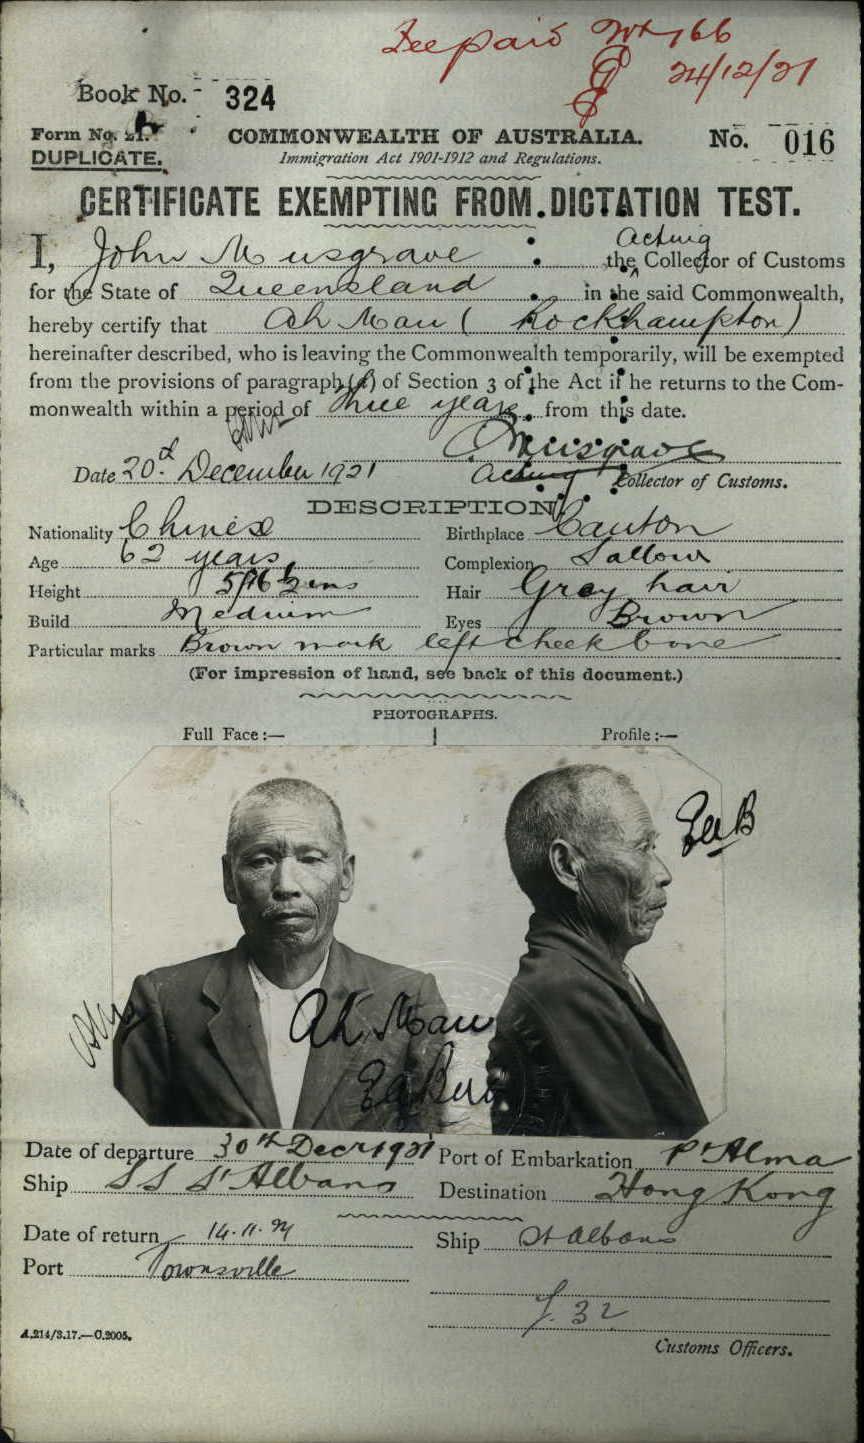 Fee paid
24/12/21
Book No. - 324
Form No. 21.
DUPLICATE.
COMMONWEALTH OF AUSTRALIA.
No. 016
Immigration Act 1901-1912 and Regulations.
CERTIFICATE EXEMPTING FROM DICTATION TEST.
Acting
I, John Musgrave the Collector of Customs
for the State of Queensland in the said Commonwealth,
hereby certify that Ah Man (Rockhampton)
hereinafter described, who is leaving the Commonwealth temporarily, will be exempted
from the provisions of paragraph (a) of Section 3 of the Act if he returns to the Com-
monwealth within a period of three years from this date.
Musgrave
Date 20th December 1921 Acting Collector of Customs.
DESCRIPTION
Nationality Chinese Birthplace Canton
Age 62 years Complexion Sallow
Height 5ft 6½ ins Hair Grey hair
Build Medium Eyes Brown
Particular marks Brown mark left cheek bone
(For impression of hand, see back of this document.)
PHOTOGRAPHS.
Full Face :— Profile :—
Ah Man
Date of departure 30th Decr 1921 Port of Embarkation Pt Alma
Ship SS St Albans Destination Hong Kong
Date of return 14.11.24 Ship St Albans
Port Townsville
J. 32
A.214/3.17.—C.2005.
Customs Officers.